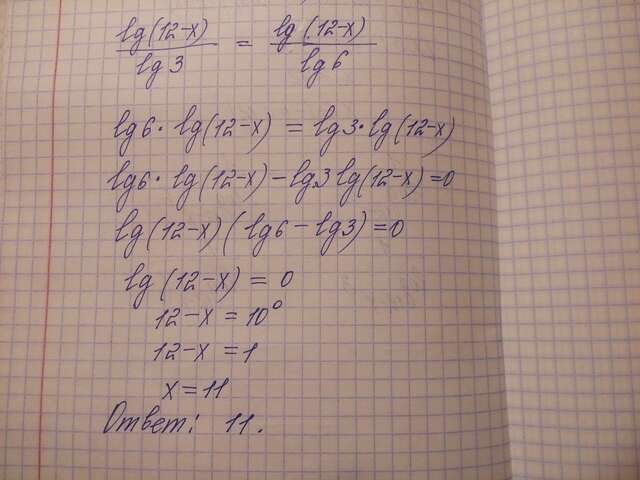 lg(12-x)/lg3 = lg(12-x)/lg6
lg6 · lg(12-x) = lg3 · lg(12-x)
lg6 · lg(12-x) - lg3 lg(12-x) = 0
lg(12-x)(lg6 - lg3) = 0
lg(12-x) = 0
12-x = 10⁰
12-x = 1
x = 11
Ответ: 11.